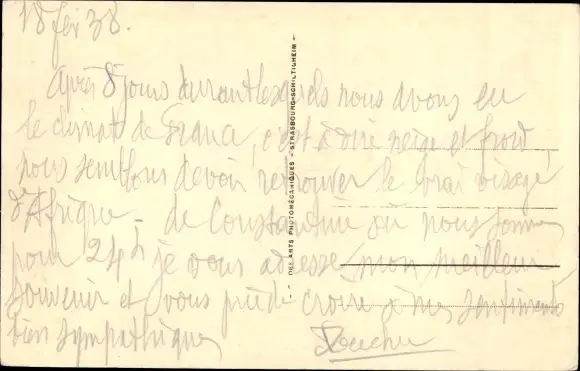 18 fév 38.
Après 8 jours durant lesquels nous avons eu
le climat de France, c'est à dire neige et froid
nous semblons devoir retrouver le vrai visage
d'Afrique - de Constantine où nous sommes
pour 24h je vous adresse mon meilleur
souvenir et vous prie de croire à mes sentiments
bien sympathiques
DES ARTS PHOTOMÉCANIQUES - STRASBOURG-SCHILTIGHEIM -